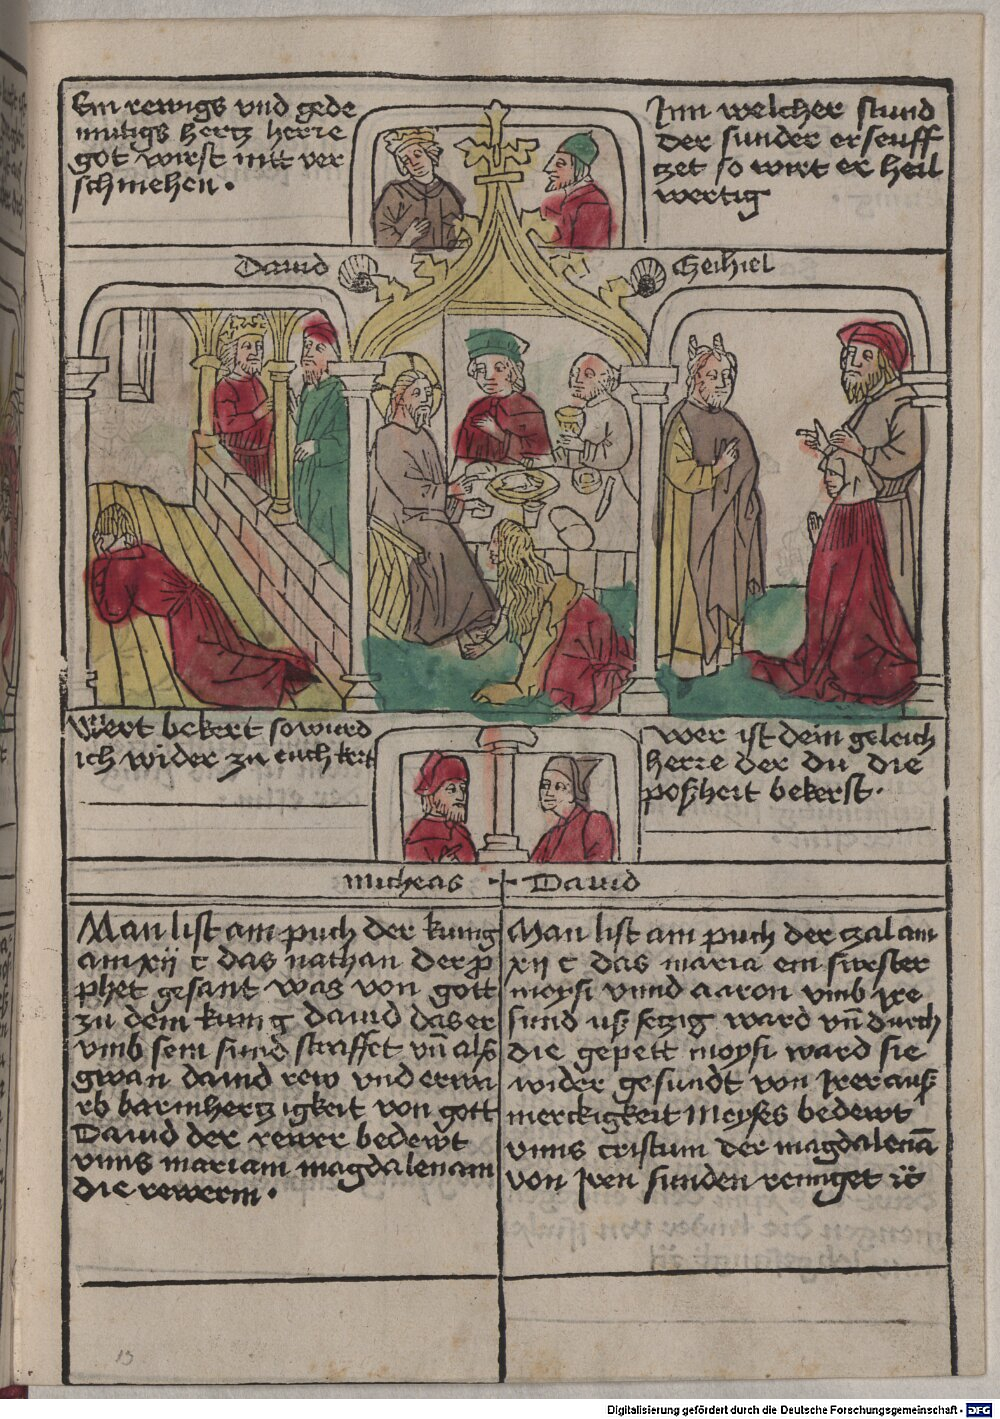 Ein rewigs vnd gede
mutigs hertz herre
got wirst nitt ver
schmehen .
Inn welcher stund
der sunder erseuff
tzet so wirt er heil
wertig
Dauid
Gzihiel
Wert bekert so wurd
ich wider zu euch kert
wer ist dein geleich
herre der du die
poßheit bekerst .
micheas
Dauid
Man list am puch der kunig
am xij c das nathan der pro
phet gesant was von gott
zu dem kunig dauid das er
vmb sein sund straffet vn̄ als
gwan dauid rew vnd erwa
rb barmhertzigkeit von gott
Dauid der rewer bedewt
vnns mariam magdalenam
die rewerin .
Man list am puch der tzal am
xij c das maria ein swester
moysi vnnd aaron vmb ire
sund uß setzig ward vn̄ durch
die gepett moysi ward sie
wider gesundt von Irer auß
merckigkeit Moyses bedewt
vnns cristum der magdalenā
von Iren sunden reiniget ist
13
Digitalisierung gefördert durch die Deutsche Forschungsgemeinschaft - DFG